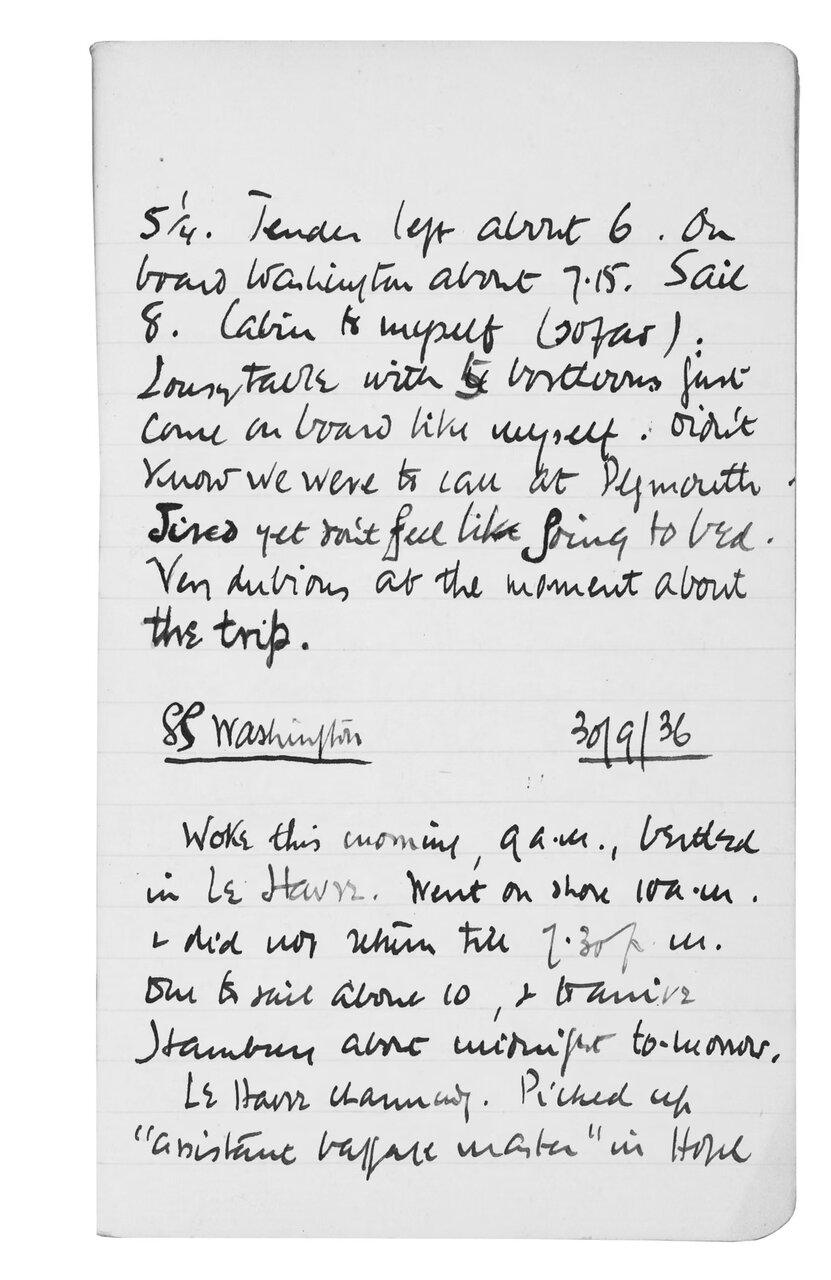 5 1/4. Tender left about 6. On
board Washington about 7.15. Sail
8. Cabin to myself (so far).
Lousy table with boisterous just
come on board like myself. Didn't
know we were to call at Plymouth.
Tired yet don't feel like going to bed.
Very dubious at the moment about
the trip.
SS Washington 30/9/36
Woke this morning, 9 a.m., berthed
in Le Havre. Went on shore 10 a.m.
& did not return till 7.30 p.m.
Due to sail about 10, & to arrive
Hamburg about midnight to-morrow.
Le Havre charming. Picked up
"assistant baggage master" in Hotel